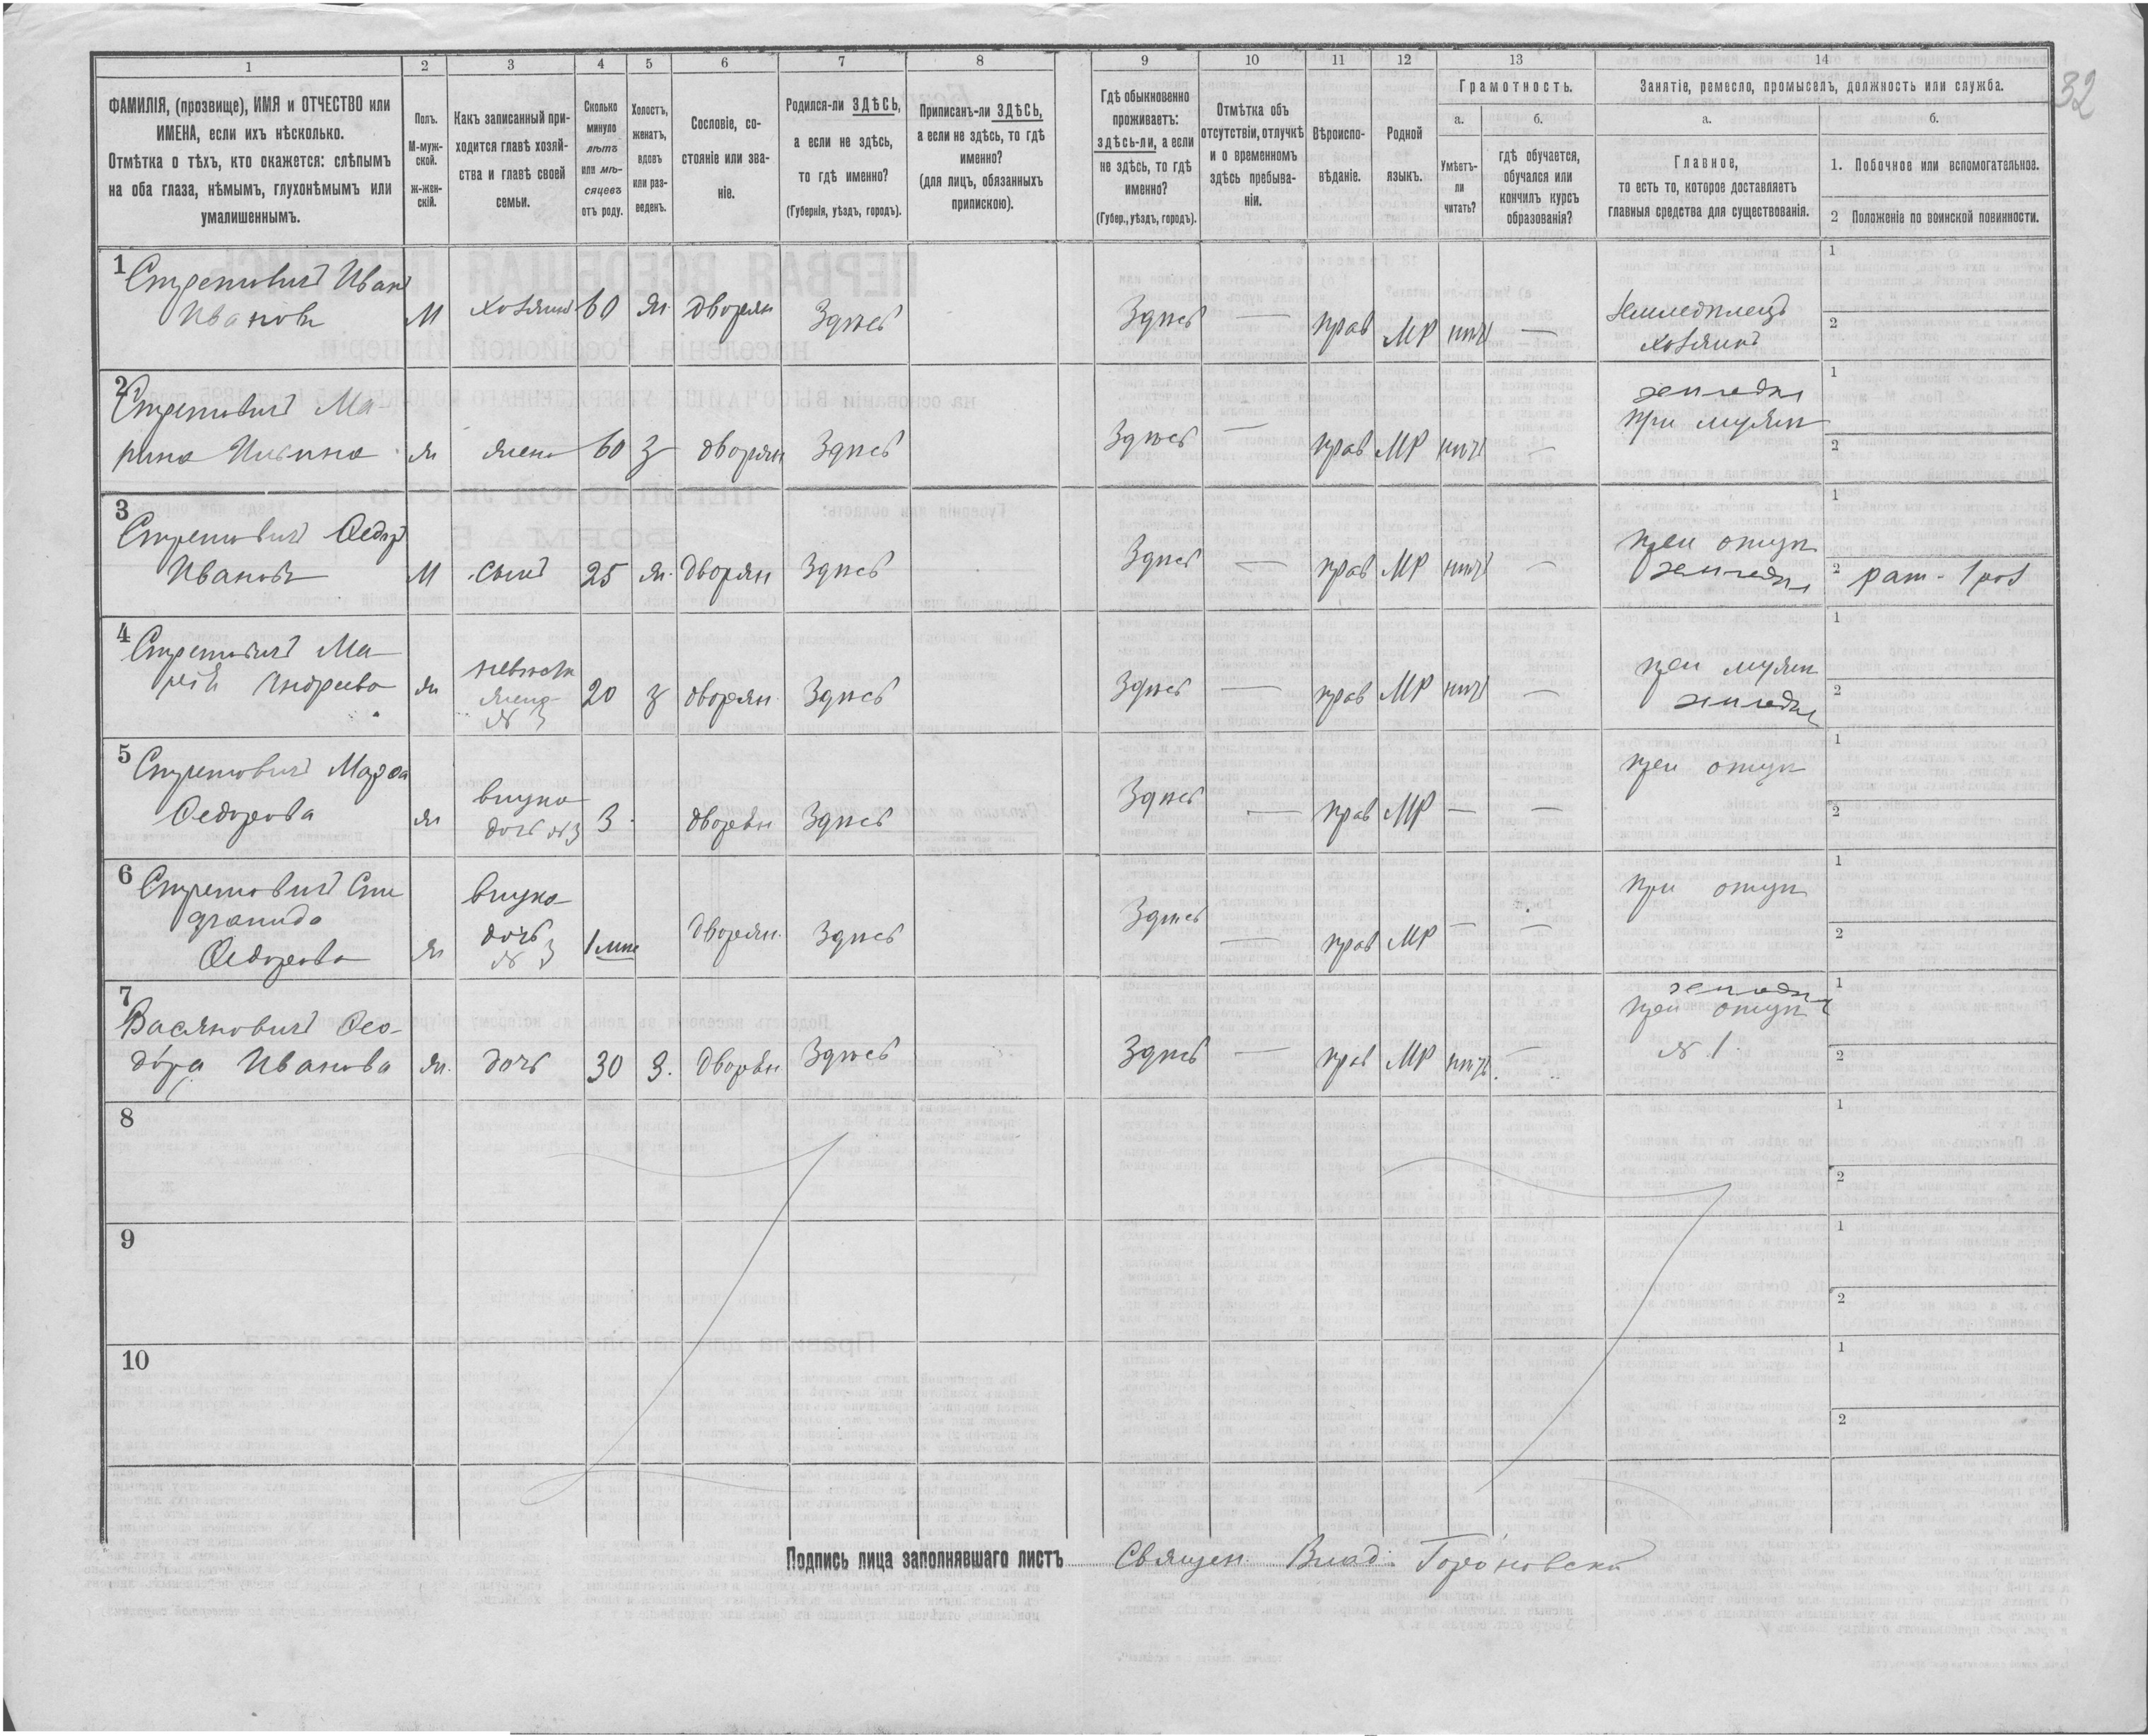 32
1
2
3
4
5
6
7
8
9
10
11
12
13
14
ФАМИЛІЯ, (прозвище), ИМЯ и ОТЧЕСТВО или
ИМЕНА, если ихъ нѣсколько.
Отмѣтка о тѣхъ, кто окажется: слѣпымъ
на оба глаза, нѣмымъ, глухонѣмымъ или
умалишеннымъ.
Полъ.
М-муж-
ской.
ж-жен-
скій.
Какъ записанный при-
ходится главѣ хозяй-
ства и главѣ своей
семьи.
Сколько
минуло
лѣтъ
или мѣ-
сяцевъ
отъ роду.
Холостъ,
женатъ,
вдовъ
или раз-
веденъ.
Сословіе, со-
стояніе или зва-
ніе.
Родился-ли ЗДѢСЬ,
а если не здѣсь,
то гдѣ именно?
(Губернія, уѣздъ, городъ).
Приписанъ-ли ЗДѢСЬ,
а если не здѣсь, то гдѣ
именно?
(для лицъ, обязанныхъ
припискою).
Гдѣ обыкновенно
проживаетъ:
здѣсь-ли, а если
не здѣсь, то гдѣ
именно?
(Губер., уѣздъ, городъ).
Отмѣтка объ
отсутствіи, отлучкѣ
и о временномъ
здѣсь пребыва-
ніи.
Вѣроиспо-
вѣданіе.
Родной
языкъ.
Грамотность.
а.
Умѣетъ-
ли
читать?
б.
гдѣ обучается,
обучался или
кончилъ курсъ
образованія?
Занятіе, ремесло, промыселъ, должность или служба.
а.
Главное,
то есть то, которое доставляетъ
главныя средства для существованія.
б.
1. Побочное или вспомогательное.
2 Положеніе по воинской повинности.
1
Иванъ
Ивановъ
М
хозяинъ
60
ж.
дворян
Здѣсь
Здѣсь
—
прав
МР
нѣтъ
—
Земледѣлецъ
хозяинъ
1
2
2
Ма-
рина
ж
жена
60
з
дворян
Здѣсь
Здѣсь
—
прав
МР
нѣтъ
—
земледѣл
при мужѣ
1
2
3
Ѳедоръ
Ивановъ
М
сынъ
25
ж.
дворян
Здѣсь
Здѣсь
—
прав
МР
нѣтъ
—
при отцѣ
земледѣл
1
2 рат. 1 раз
4
Ма-
рія Андреева
ж
невѣстка
жена
№ 3
20
з
дворян.
Здѣсь
Здѣсь
—
прав
МР
нѣтъ
—
при мужѣ
земледѣл
1
2
5
Марѳа
Ѳедорова
ж
внука
дочь №3
3
дворян
Здѣсь
Здѣсь
—
прав
МР
—
—
при отцѣ
1
2
6
Ѳедорова
ж
внука
дочь
№ 3
1 мѣс
дворян.
Здѣсь
Здѣсь
—
прав
МР
—
—
при отцѣ
1
2
7
Васяновичъ Ѳео-
дора Иванова
ж.
дочь
30
з.
дворян
Здѣсь
Здѣсь
—
прав
МР
нѣтъ.
—
земледѣл
при отцѣ
№ 1.
1
2
8
1
2
9
1
2
10
1
2
Подпись лица заполнявшаго листъ Священ. Влад.